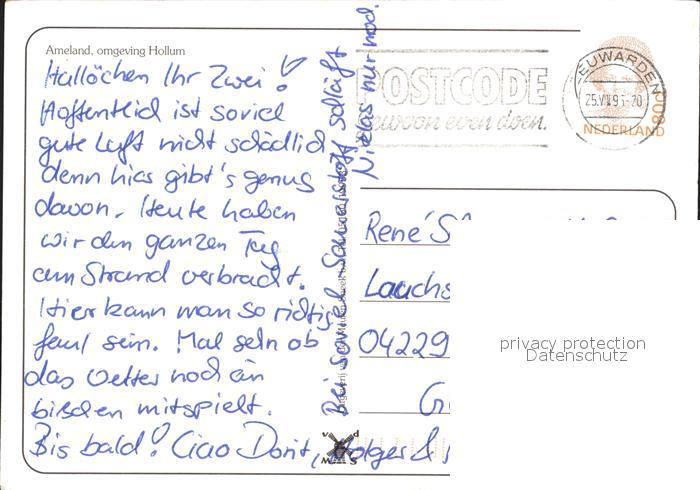 Ameland, omgeving Hollum
Hallöchen Ihr Zwei!
Hoffentlich ist soviel
gute Luft nicht schädlich
denn hier gibt's genug
davon. Heute haben
wir den ganzen Tag
am Strand verbracht.
Hier kann man so richtig
faul sein. Mal sehn ob
das Wetter noch ein
bißchen mitspielt.
Bis bald! Ciao Dorit, Holger &
Bei soviel Sauerstoff schläft
Niklas nur noch.
POSTCODE
gewoon even doen.
LEEUWARDEN
NEDERLAND
80c
René
Lauchs
04229
privacy protection
Datenschutz
V d
M S